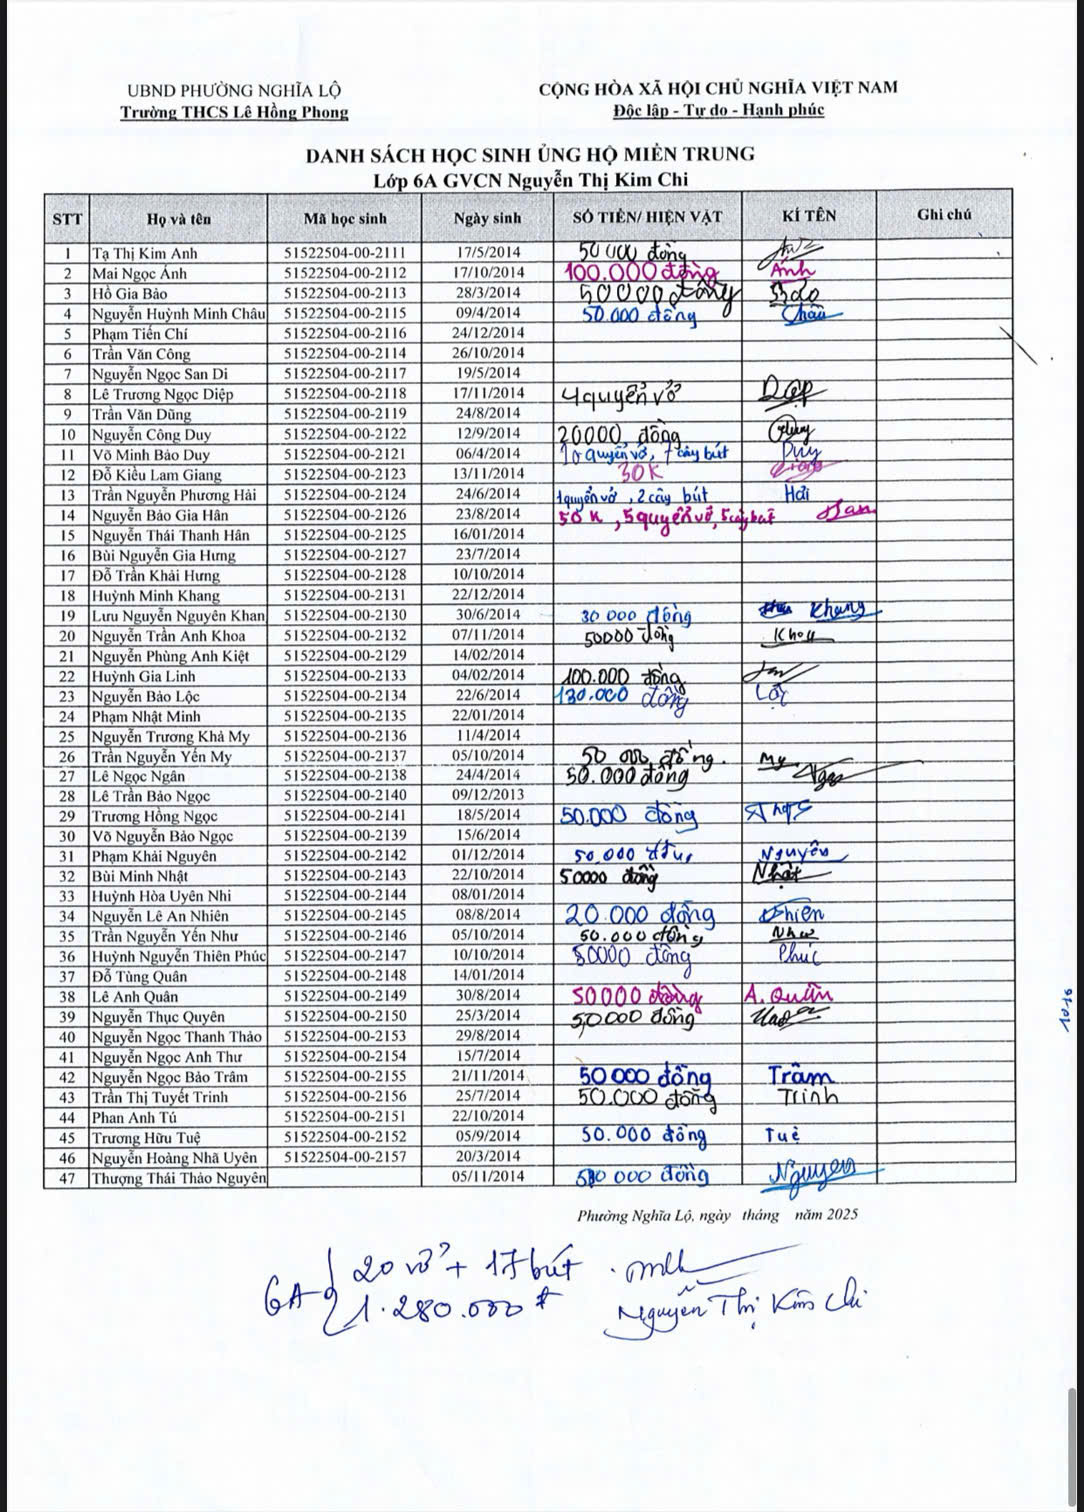 UBND PHƯỜNG NGHĨA LỘ
Trường THCS Lê Hồng Phong
CỘNG HÒA XÃ HỘI CHỦ NGHĨA VIỆT NAM
Độc lập - Tự do - Hạnh phúc
DANH SÁCH HỌC SINH ỦNG HỘ MIỀN TRUNG
Lớp 6A GVCN Nguyễn Thị Kim Chi
STT Họ và tên Mã học sinh Ngày sinh SỐ TIỀN/ HIỆN VẬT KÍ TÊN Ghi chú
1 Tạ Thị Kim Anh 51522504-00-2111 17/5/2014 50 000 đồng
2 Mai Ngọc Ánh 51522504-00-2112 17/10/2014 100.000 đồng Ánh
3 Hồ Gia Bảo 51522504-00-2113 28/3/2014 50000 đồng Bảo
4 Nguyễn Huỳnh Minh Châu 51522504-00-2115 09/4/2014 50.000 đồng Châu
5 Phạm Tiến Chí 51522504-00-2116 24/12/2014
6 Trần Văn Công 51522504-00-2114 26/10/2014
7 Nguyễn Ngọc San Di 51522504-00-2117 19/5/2014
8 Lê Trương Ngọc Diệp 51522504-00-2118 17/11/2014 4 quyển vở Diệp
9 Trần Văn Dũng 51522504-00-2119 24/8/2014
10 Nguyễn Công Duy 51522504-00-2122 12/9/2014 20000 đồng Duy
11 Võ Minh Bảo Duy 51522504-00-2121 06/4/2014 10 quyển vở, 7 cây bút Duy
12 Đỗ Kiều Lam Giang 51522504-00-2123 13/11/2014 30K
13 Trần Nguyễn Phương Hải 51522504-00-2124 24/6/2014 1 quyển vở, 2 cây bút Hải
14 Nguyễn Bảo Gia Hân 51522504-00-2126 23/8/2014 50 K, 5 quyển vở, 5 cây bút Han
15 Nguyễn Thái Thanh Hân 51522504-00-2125 16/01/2014
16 Bùi Nguyễn Gia Hưng 51522504-00-2127 23/7/2014
17 Đỗ Trần Khải Hưng 51522504-00-2128 10/10/2014
18 Huỳnh Minh Khang 51522504-00-2131 22/12/2014
19 Lưu Nguyễn Nguyên Khan 51522504-00-2130 30/6/2014 30 000 đồng Khang
20 Nguyễn Trần Anh Khoa 51522504-00-2132 07/11/2014 50000 đồng Khoa
21 Nguyễn Phùng Anh Kiệt 51522504-00-2129 14/02/2014
22 Huỳnh Gia Linh 51522504-00-2133 04/02/2014 100.000 đồng
23 Nguyễn Bảo Lộc 51522504-00-2134 22/6/2014 130.000 đồng Lộc
24 Phạm Nhật Minh 51522504-00-2135 22/01/2014
25 Nguyễn Trương Khả My 51522504-00-2136 11/4/2014
26 Trần Nguyễn Yến My 51522504-00-2137 05/10/2014 50 000 đồng. My
27 Lê Ngọc Ngân 51522504-00-2138 24/4/2014 50.000 đồng
28 Lê Trần Bảo Ngọc 51522504-00-2140 09/12/2013
29 Trương Hồng Ngọc 51522504-00-2141 18/5/2014 50.000 đồng
30 Võ Nguyễn Bảo Ngọc 51522504-00-2139 15/6/2014
31 Phạm Khải Nguyên 51522504-00-2142 01/12/2014 50.000 Nguyên
32 Bùi Minh Nhật 51522504-00-2143 22/10/2014 50000 đồng Nhật
33 Huỳnh Hòa Uyên Nhi 51522504-00-2144 08/01/2014
34 Nguyễn Lê An Nhiên 51522504-00-2145 08/8/2014 20.000 đồng Nhiên
35 Trần Nguyễn Yến Như 51522504-00-2146 05/10/2014 50.000 đồng Như
36 Huỳnh Nguyễn Thiên Phúc 51522504-00-2147 10/10/2014 50000 đồng Phúc
37 Đỗ Tùng Quân 51522504-00-2148 14/01/2014
38 Lê Anh Quân 51522504-00-2149 30/8/2014 50000 đồng A. Quân
39 Nguyễn Thục Quyên 51522504-00-2150 25/3/2014 50000 đồng
40 Nguyễn Ngọc Thanh Thảo 51522504-00-2153 29/8/2014
41 Nguyễn Ngọc Anh Thư 51522504-00-2154 15/7/2014
42 Nguyễn Ngọc Bảo Trâm 51522504-00-2155 21/11/2014 50 000 đồng Trâm
43 Trần Thị Tuyết Trinh 51522504-00-2156 25/7/2014 50.000 đồng Trinh
44 Phan Anh Tú 51522504-00-2151 22/10/2014
45 Trương Hữu Tuệ 51522504-00-2152 05/9/2014 50.000 đồng Tuệ
46 Nguyễn Hoàng Nhã Uyên 51522504-00-2157 20/3/2014
47 Thượng Thái Thảo Nguyên 05/11/2014 50 000 đồng Nguyen
Phường Nghĩa Lộ, ngày tháng năm 2025
6A 20 vở + 17 bút
1.280.000 đ
Nguyễn Thị Kim Chi